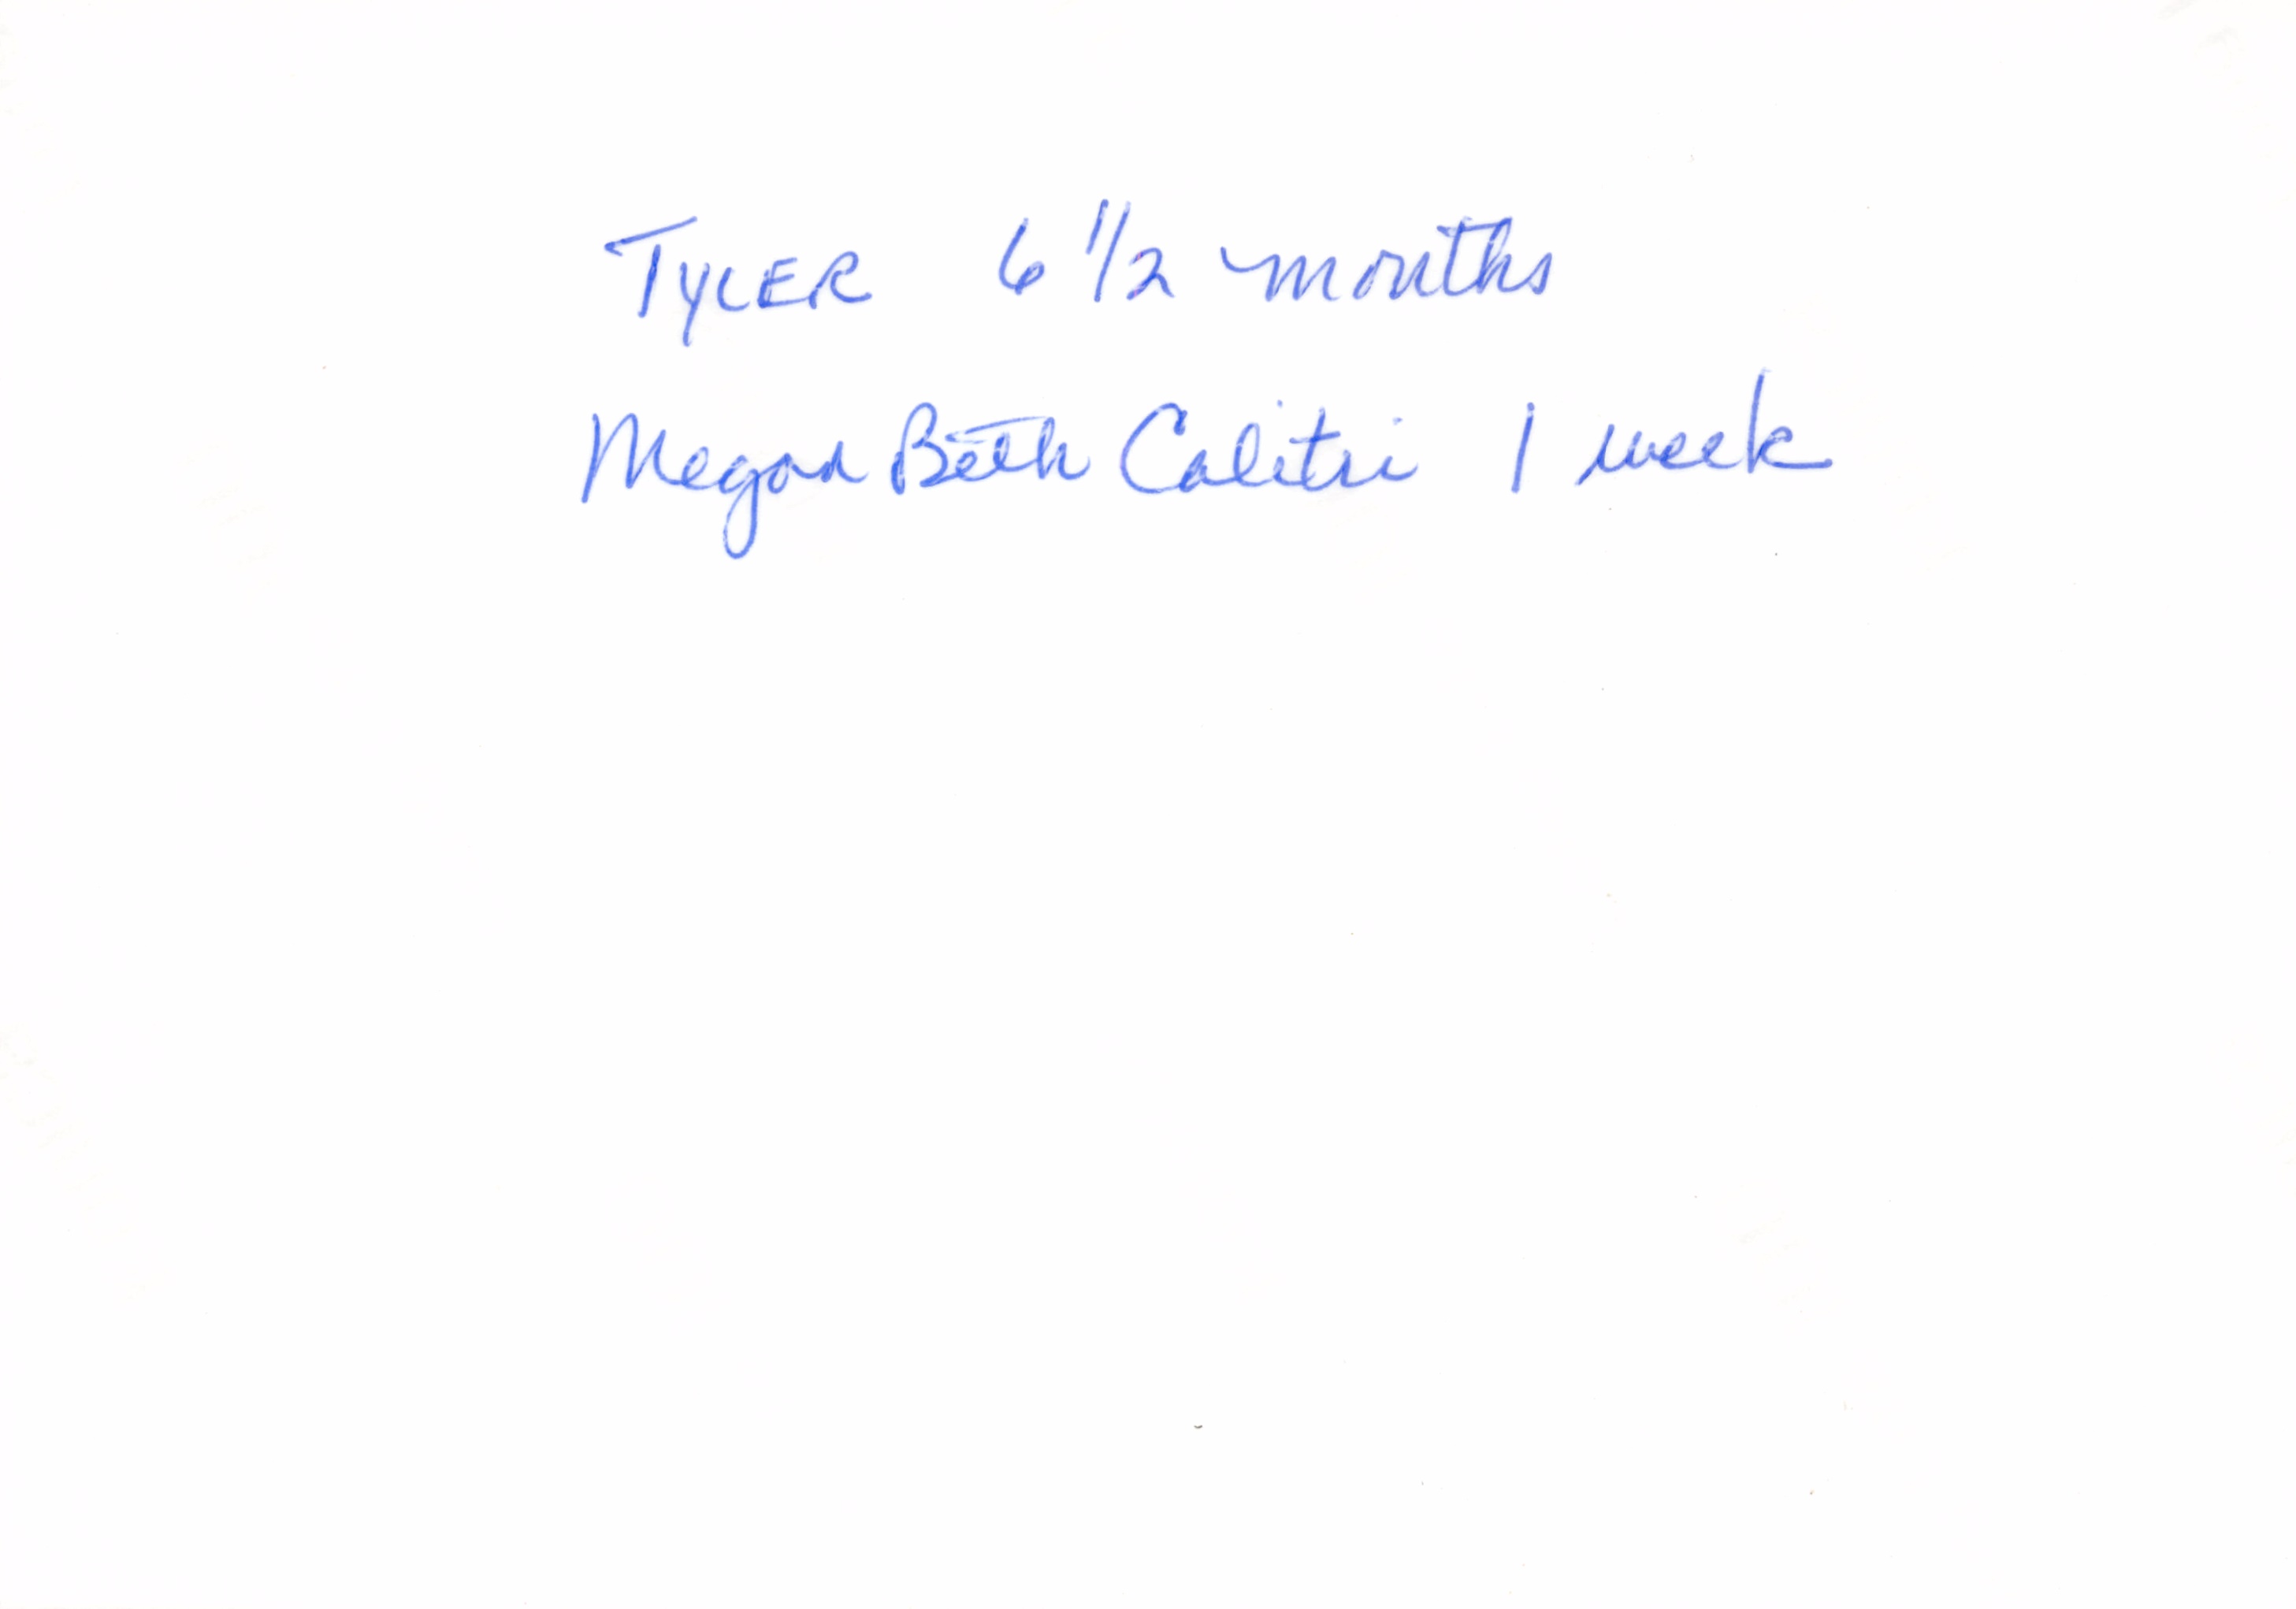 TYLER 6 1/2 months
Megan Beth Calitri 1 week